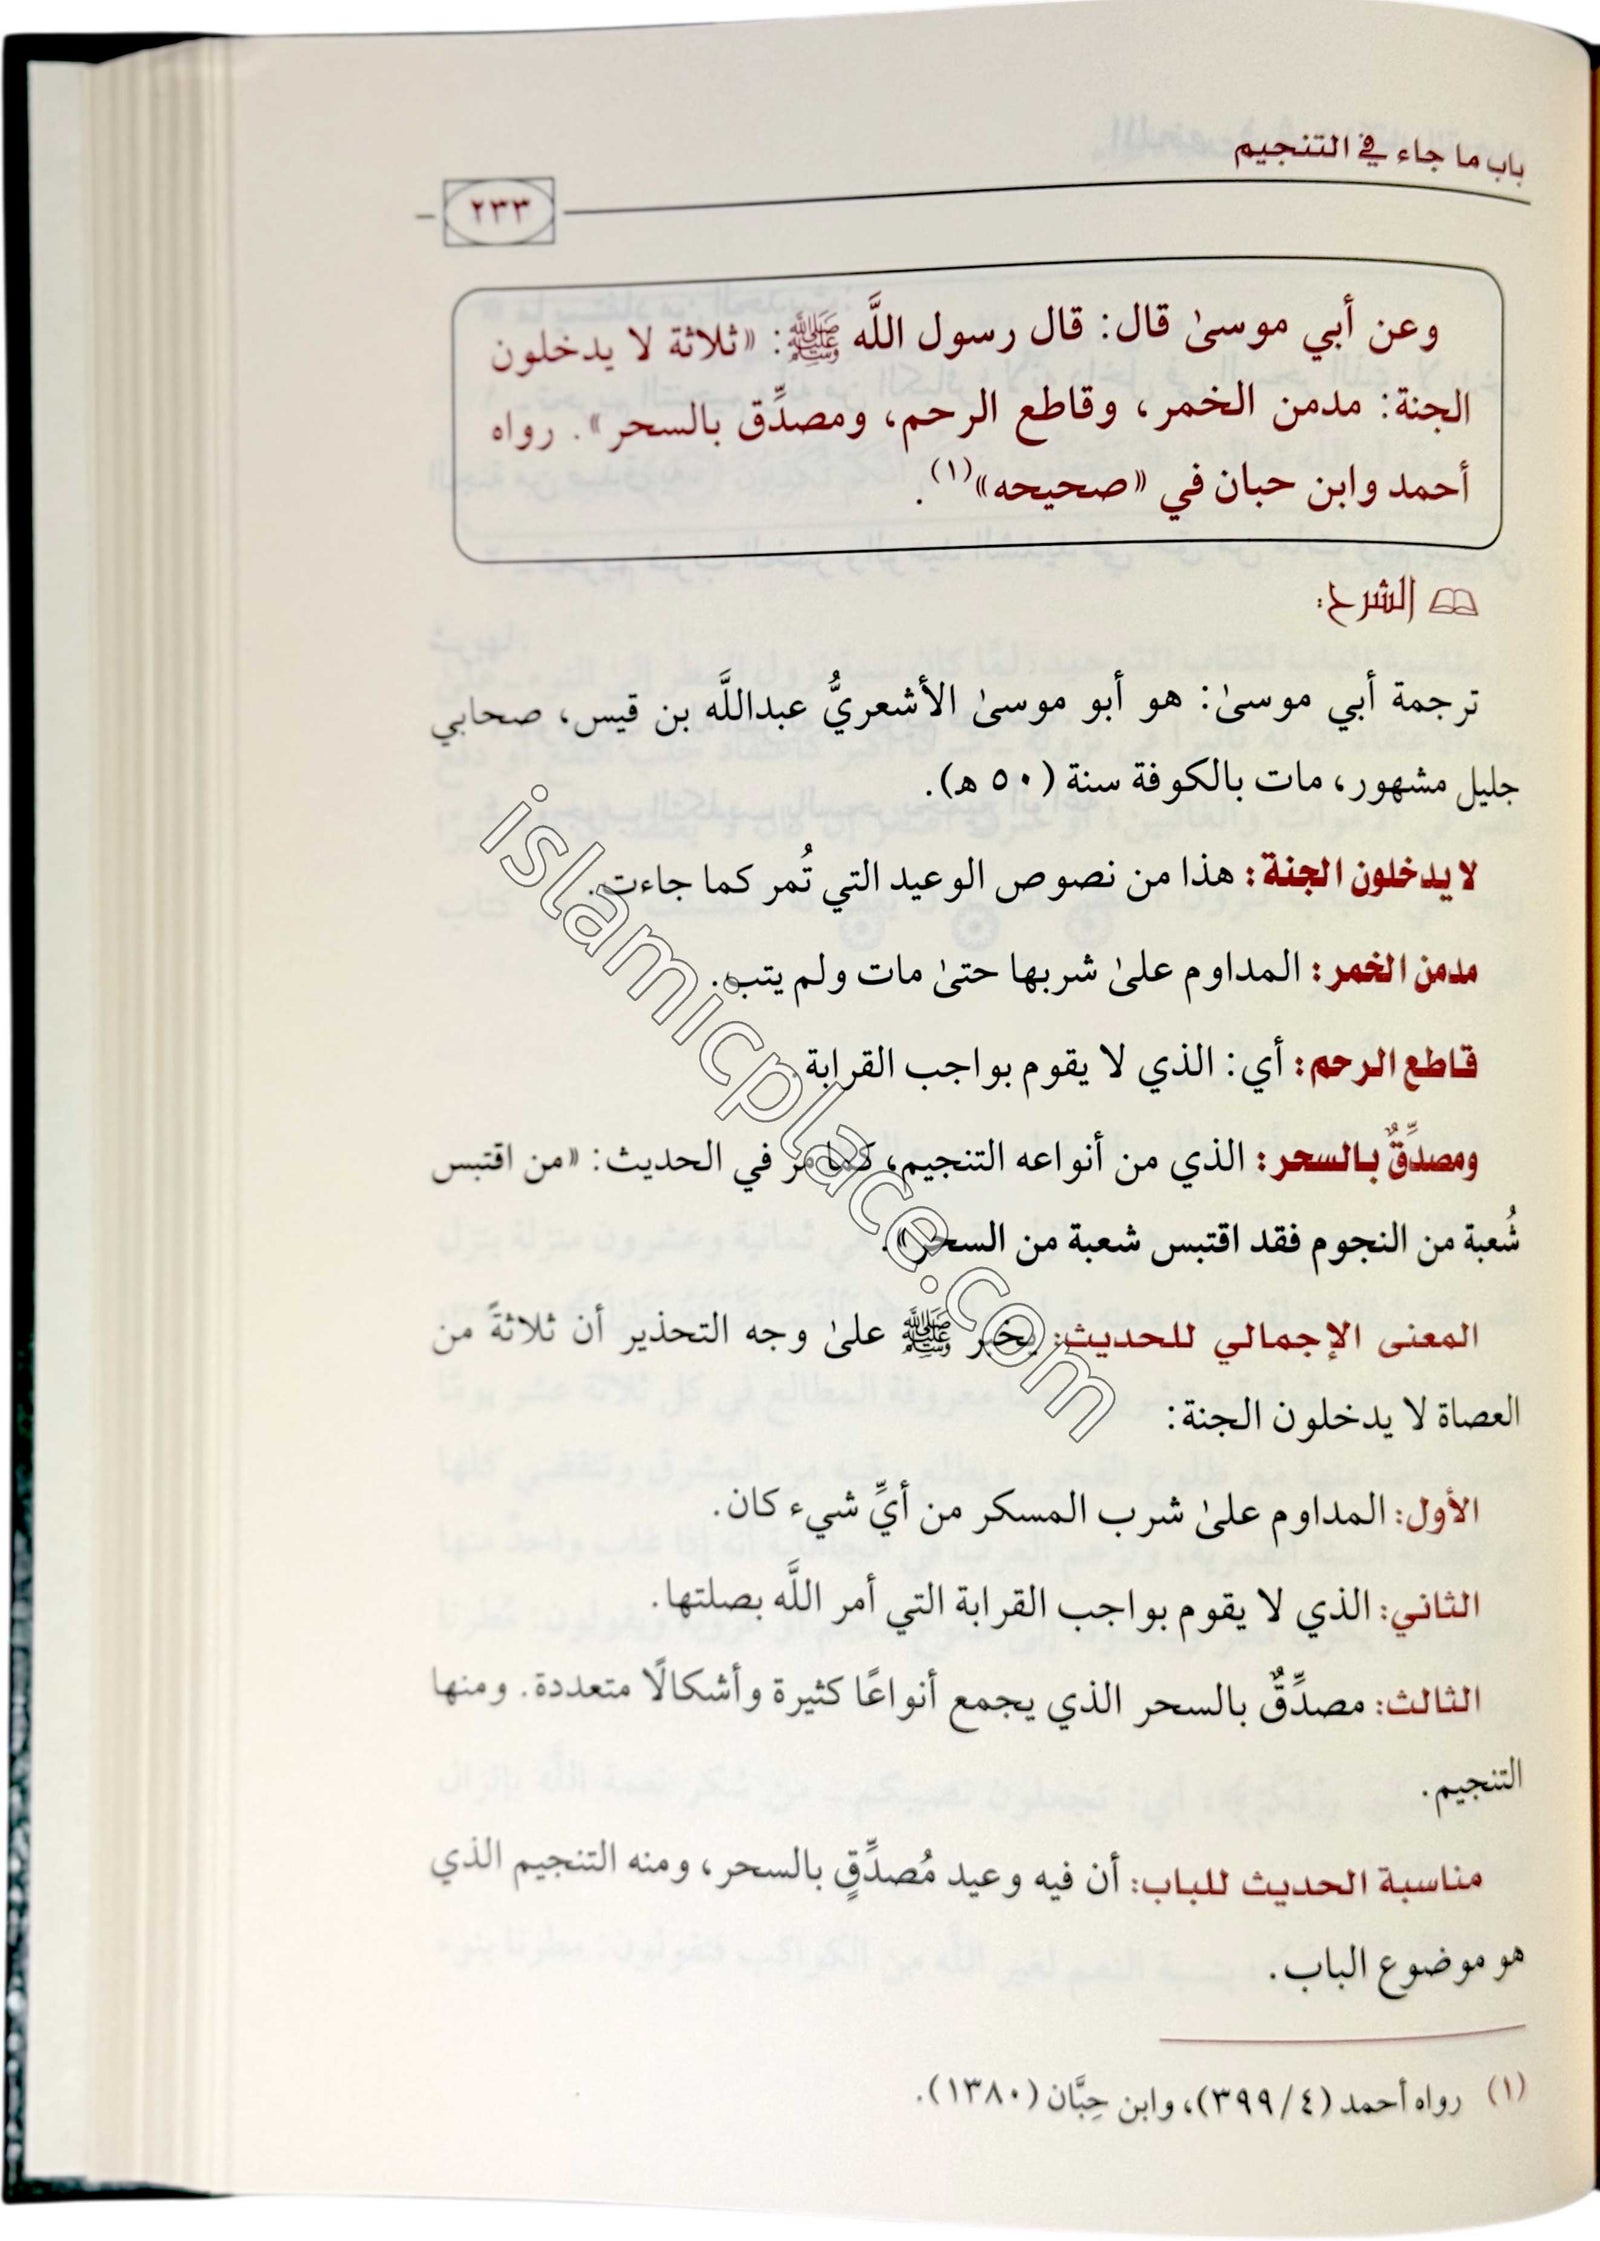 باب ما جاء في التنجيم
٢٣٣
وعن أبي موسىٰ قال: قال رسول اللَّه ﷺ: «ثلاثة لا يدخلون
الجنة: مدمن الخمر، وقاطع الرحم، ومصدِّق بالسحر». رواه
أحمد وابن حبان في «صحيحه»(١).
الشرح:
ترجمة أبي موسىٰ: هو أبو موسىٰ الأشعريُّ عبداللَّه بن قيس، صحابي
جليل مشهور، مات بالكوفة سنة (٥٠ هـ).
لا يدخلون الجنة: هذا من نصوص الوعيد التي تُمر كما جاءت.
مدمن الخمر: المداوم علىٰ شربها حتىٰ مات ولم يتب.
قاطع الرحم: أي: الذي لا يقوم بواجب القرابة.
ومصدِّقٌ بالسحر: الذي من أنواعه التنجيم، كما مر في الحديث: «من اقتبس
شُعبة من النجوم فقد اقتبس شعبة من السحر».
المعنى الإجمالي للحديث: يخبر ﷺ علىٰ وجه التحذير أن ثلاثةً من
العصاة لا يدخلون الجنة:
الأول: المداوم علىٰ شرب المسكر من أيِّ شيء كان.
الثاني: الذي لا يقوم بواجب القرابة التي أمر اللَّه بصلتها.
الثالث: مصدِّقٌ بالسحر الذي يجمع أنواعًا كثيرة وأشكالًا متعددة. ومنها
التنجيم.
مناسبة الحديث للباب: أن فيه وعيد مُصدِّقٍ بالسحر، ومنه التنجيم الذي
هو موضوع الباب.
(١) رواه أحمد (٤/ ٣٩٩)، وابن حِبَّان (١٣٨٠).
islamicplace.com